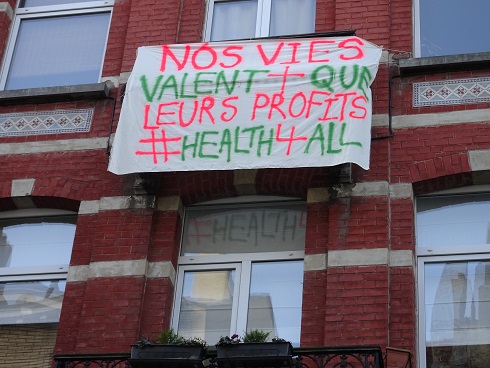 NOS VIES
VALENT + QUE
LEURS PROFITS
#HEALTH4ALL
#HEALTH4